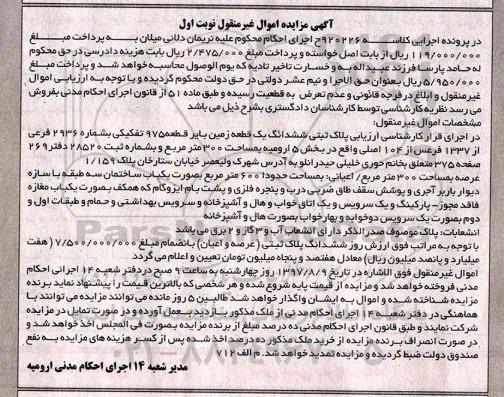 آگهی مزایده اموال غیرمنقول نوبت اول
در پرونده اجرایی کلاسه ۹۲۰۲۲۶ج اجرای احکام محکوم علیه نریمان دلانی میلان به پرداخت مبلغ
۱۱۹/۰۰۰/۰۰۰ ریال از بابت اصل خواسته و پرداخت مبلغ ۲/۴۷۵/۰۰۰ ریال بابت هزینه دادرسی در حق محکوم
له حامد پارسا فرزند عبداله به و خسارت تاخیر تادیه که یوم الوصول محاسبه خواهد شد و پرداخت مبلغ
۵/۹۵۰/۰۰۰ ریال بعنوان حق الاجرا و نیم عشر دولتی در حق دولت محکوم گردیده و با توجه به ارزیابی اموال
غیرمنقول و ابلاغ در فرجه قانونی و عدم تعرض به قطعیت رسیده و طبق ماده ۵۱ از قانون اجرای احکام مدنی بفروش
می رسد نظریه کارشناسی توسط کارشناسان دادگستری بشرح ذیل می باشد
مشخصات اموال غیرمنقول:
در اجرای قرار کارشناسی ارزیابی پلاک ثبتی ششدانگ یک قطعه زمین بایر قطعه ۹۷۵ تفکیکی بشماره ۲۹۳۶ فرعی
از ۱۳۳۷ فرعی از ۱۰۴ اصلی واقع در بخش ۵ ارومیه بمساحت ۳۰۰ متر مربع و بشماره ثبت ۲۸۵۲۰ دفتر ۲۶۹
صفحه ۳۷۵ متعلق بخانم حوری خلیلی حیدرانلو به آدرس شهرک ولیعصر خیابان ستارخان پلاک ۱/۱۵۹
عرصه بمساحت ۳۰۰ متر مربع/ اعیانی: بمساحت حدودا ۶۰۰ متر مربع بصورت یکباب ساختمان سه طبقه با سازه
دیوار باربر آجری و پوشش سقف طاق ضربی درب و پنجره فلزی و پشت بام ایزوگام که همکف بصورت یکباب مغازه
فاقد مجوز- پارکینگ و یک سرویس و یک اتاق خواب و هال و آشپزخانه و سرویس بهداشتی و حمام و طبقات اول و
دوم بصورت یک سرویس دوخوابه و چهارخواب بصورت هال و آشپزخانه
انشعابات: پلاک موصوف صدرالذکر دارای انشعاب آب و ۳ گاز و ۲ برق می باشد
با توجه به مراتب فوق ارزش روز ششدانگ پلاک ثبتی (عرصه و اعیان) بانضمام مبلغ ۷/۵۰۰/۰۰۰/۰۰۰ ( هفت
میلیارد و پانصد میلیون ریال) معادل هفتصد و پنجاه میلیون تومان تعیین و اعلام می گردد
اموال غیرمنقول فوق الاشاره در تاریخ ۱۳۹۷/۸/۹ روز چهارشنبه به ساعت ۹ صبح در دفتر شعبه ۱۴ اجرای احکام
مدنی فروخته خواهد شد و مزایده از قیمت پایه شروع شده و هر شخصی که بالاترین قیمت را پیشنهاد نماید برنده
مزایده شناخته شده و اموال به ایشان واگذار خواهد شد طالبین ۵ روز مانده می توانند مزایده می توانند با
هماهنگی در دفتر شعبه ۱۴ اجرای احکام مدنی از ملک مذکور بازدید بعمل آورده و در صورت تمایل در مزایده
شرکت نمایند و طبق قانون اجرای احکام مدنی ده درصد مبلغ از برنده مزایده بصورت فی المجلس اخذ خواهد شد و
در صورت انصراف برنده مزایده از خرید ملک مذکور ده درصد اخذ شده پس از کسر هزینه های مزایده به نفع
صندوق دولت ضبط گردیده و مزایده تمدید خواهد شد. م الف ۷۱۲
مدیر شعبه ۱۴ اجرای احکام مدنی ارومیه